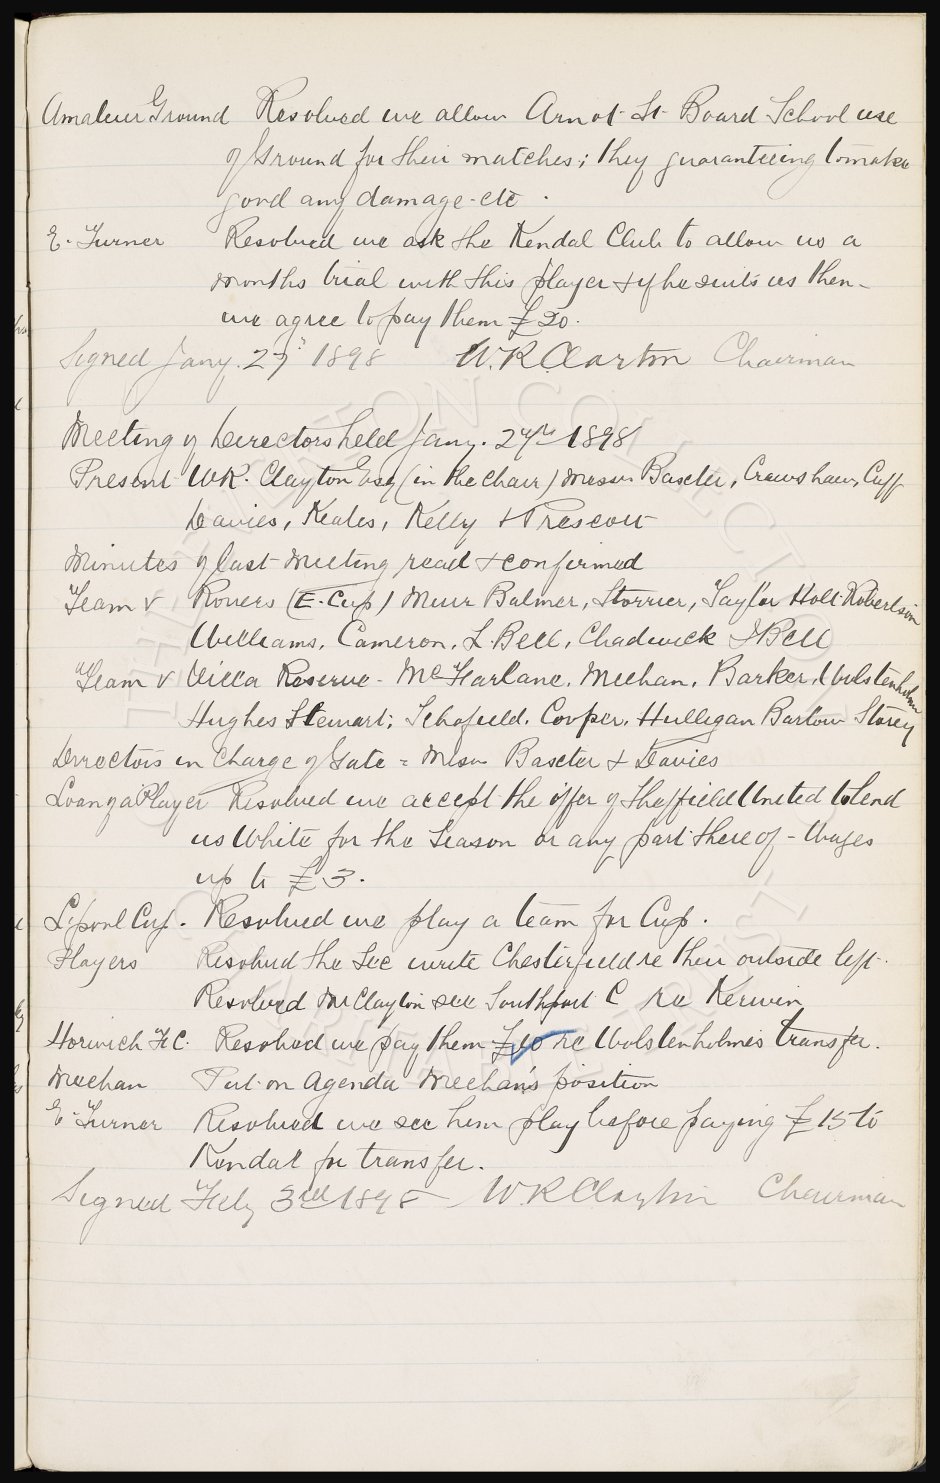 Amateur Ground Resolved we allow Arnot St Board School use
of Ground for their matches; they guaranteeing to make
good any damage etc.
E. Turner Resolved we ask the Kendal Club to allow us a
months trial with this player & if he suits us then
we agree to pay them £20.
Signed Jany. 27" 1898 W.R. Clayton Chairman
Meeting of Directors held Jany. 27th 1898
Present WR. Clayton Esq (in the chair) Messrs Baxter, Crawshaw, Cuff
Davies, Keates, Kelly & Prescott
Minutes of last meeting read & confirmed
Team v Rovers (E. Cup) Muir Balmer, Storrier, Taylor Holt Robertson
Williams, Cameron, L. Bell, Chadwick J Bell
Team v Villa Reserve - McFarlane, Meehan, Barker, Wolstenholm
Hughes Stewart; Schofield, Cooper, Hulligan Barlow Storey
Directors in Charge of Gate = Messrs Baxter & Davies
Loan of a Player Resolved we accept the offer of Sheffield United to lend
us White for the Season or any part thereof - Wages
up to £3.
L'pool Cup. Resolved we play a team for Cup.
Players Resolved the Sec write Chesterfield re their outside left.
Resolved Mr Clayton see Southport C re Kerwin
Horwich FC. Resolved we pay them £10 re Wolstenholmes transfer.
Meehan Put on Agenda Meehan's position
E. Turner Resolved we see him play before paying £15 to
Kendal for transfer.
Signed Feby 3rd 1898 W R Clayton Chairman
THE EVERTON COLLECTION
CHARITABLE TRUST